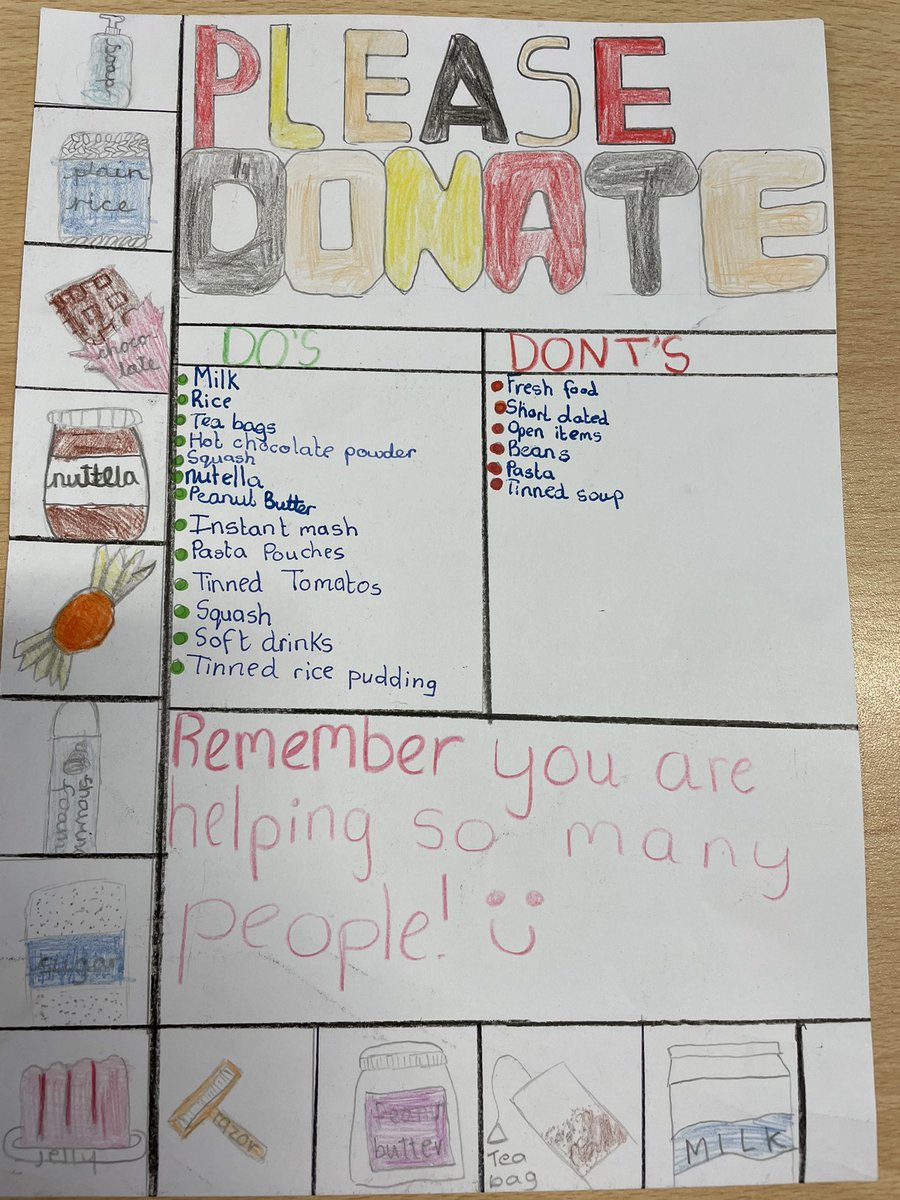 PLEASE
DONATE
soap
plain
rice
choco
late
nutella
shaving
foam
sugar
jelly
DO'S
Milk
Rice
Tea bags
Hot chocolate powder
Squash
nutella
Peanut Butter
Instant mash
Pasta Pouches
Tinned Tomatos
Squash
Soft drinks
Tinned rice pudding
DONT'S
Fresh food
Short dated
Open items
Beans
Pasta
Tinned soup
Remember you are
helping so many
people!
razor
butter
Tea
bag
MILK